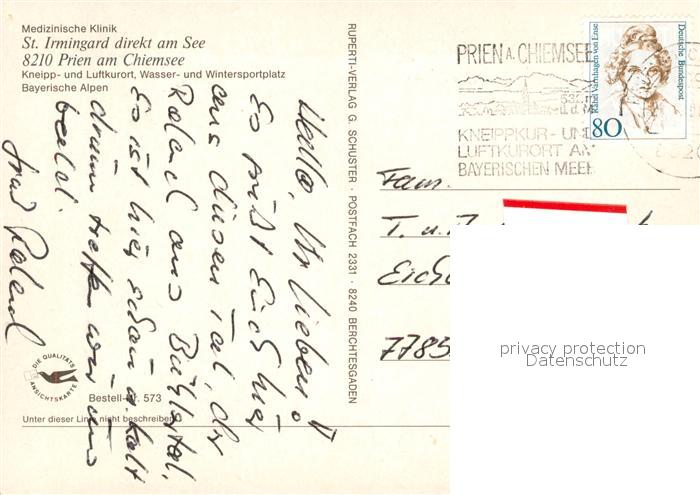 Medizinische Klinik
St. Irmingard direkt am See
8210 Prien am Chiemsee
Kneipp- und Luftkurort, Wasser- und Wintersportplatz
Bayerische Alpen
Hallo, Ihr Lieben!
Es grüßt Euch hier
aus diesem Tal, der
Roland aus Bühlertal.
Es ist hier schön u. kalt
drum treffen wir uns
bald.
Roland
DIE QUALITÄTS
ANSICHTSKARTE
Bestell-Nr. 573
Unter dieser Linie nicht beschreiben!
RUPERTI-VERLAG G. SCHUSTER · POSTFACH 2331 · 8240 BERCHTESGADEN
PRIEN A. CHIEMSEE
KNEIPPKUR- UND
LUFTKURORT AM
BAYERISCHEN MEER
Rahel Varnhagen von Ense
Deutsche Bundespost
80
Fam.
T. u.
7785
privacy protection
Datenschutz